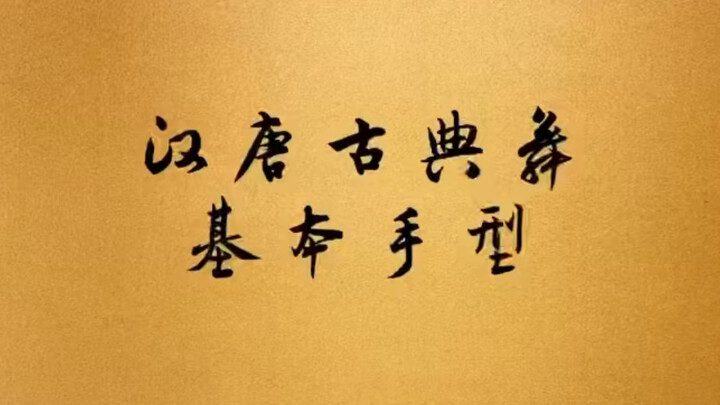 汉唐古典舞
基本手型